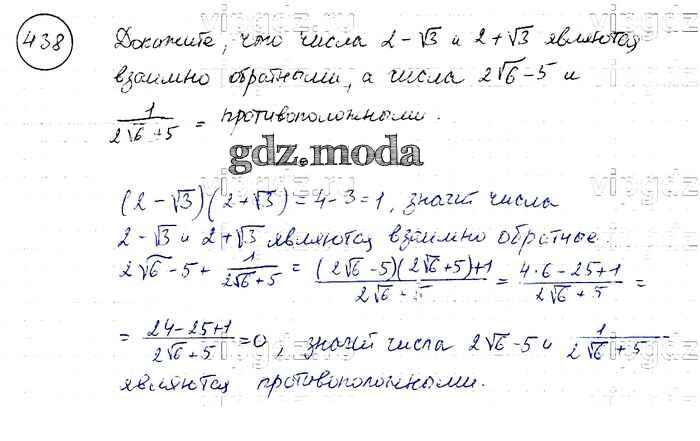 438 Докажите, что числа 2-√3 и 2+√3 являются
взаимно обратными, а числа 2√6-5 и
1/(2√6+5) = противоположными.
gdz.moda
(2-√3)(2+√3)=4-3=1, значит числа
2-√3 и 2+√3 являются взаимно обратные.
2√6-5+ 1/(2√6+5) = ((2√6-5)(2√6+5)+1)/(2√6+5) = (4·6-25+1)/(2√6+5) =
= (24-25+1)/(2√6+5) =0, значит числа 2√6-5 и 1/(2√6+5)
являются противоположными.